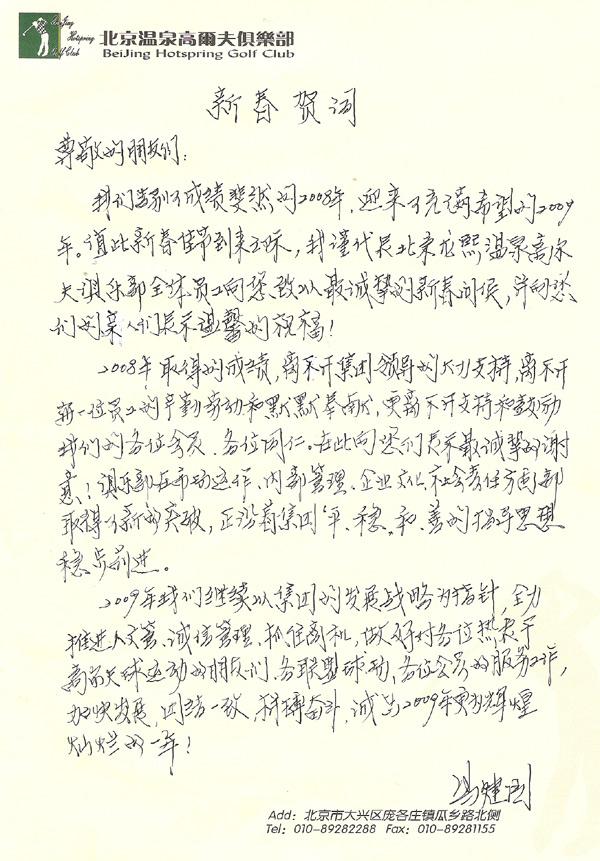 BeiJing
Hotspring
Golf Club
北京温泉高爾夫俱樂部
BeiJing Hotspring Golf Club
新春贺词
尊敬的朋友们：
我们告别了成绩斐然的2008年，迎来了充满希望的2009
年。值此新春佳节到来之际，我谨代表北京龙熙温泉高尔
夫俱乐部全体员工向您致以最诚挚的新春问候，并向您
们的亲人们表示温馨的祝福！
2008年取得的成绩，离不开集团领导的大力支持，离不开
每一位员工的辛勤劳动和默默奉献，更离不开支持和鼓励
我们的各位会员、各位同仁。在此向您们表示最诚挚的谢
意！俱乐部在市场运作、内部管理、企业文化、社会责任方面都
取得了新的突破，正沿着集团“平、稳、和、善”的指导思想
稳步前进。
2009年我们继续以集团的发展战略为指针，全力
推进人文管、诚信管理、抓住商机，做好对各位热衷于
高尔夫球运动的朋友们、各联盟球场、各位会员的服务工作，
加快发展，团结一致，拼搏奋斗，诚为2009年更为辉煌
灿烂的一年！
冯健国
Add: 北京市大兴区庞各庄镇瓜乡路北侧
Tel: 010-89282288 Fax: 010-89281155